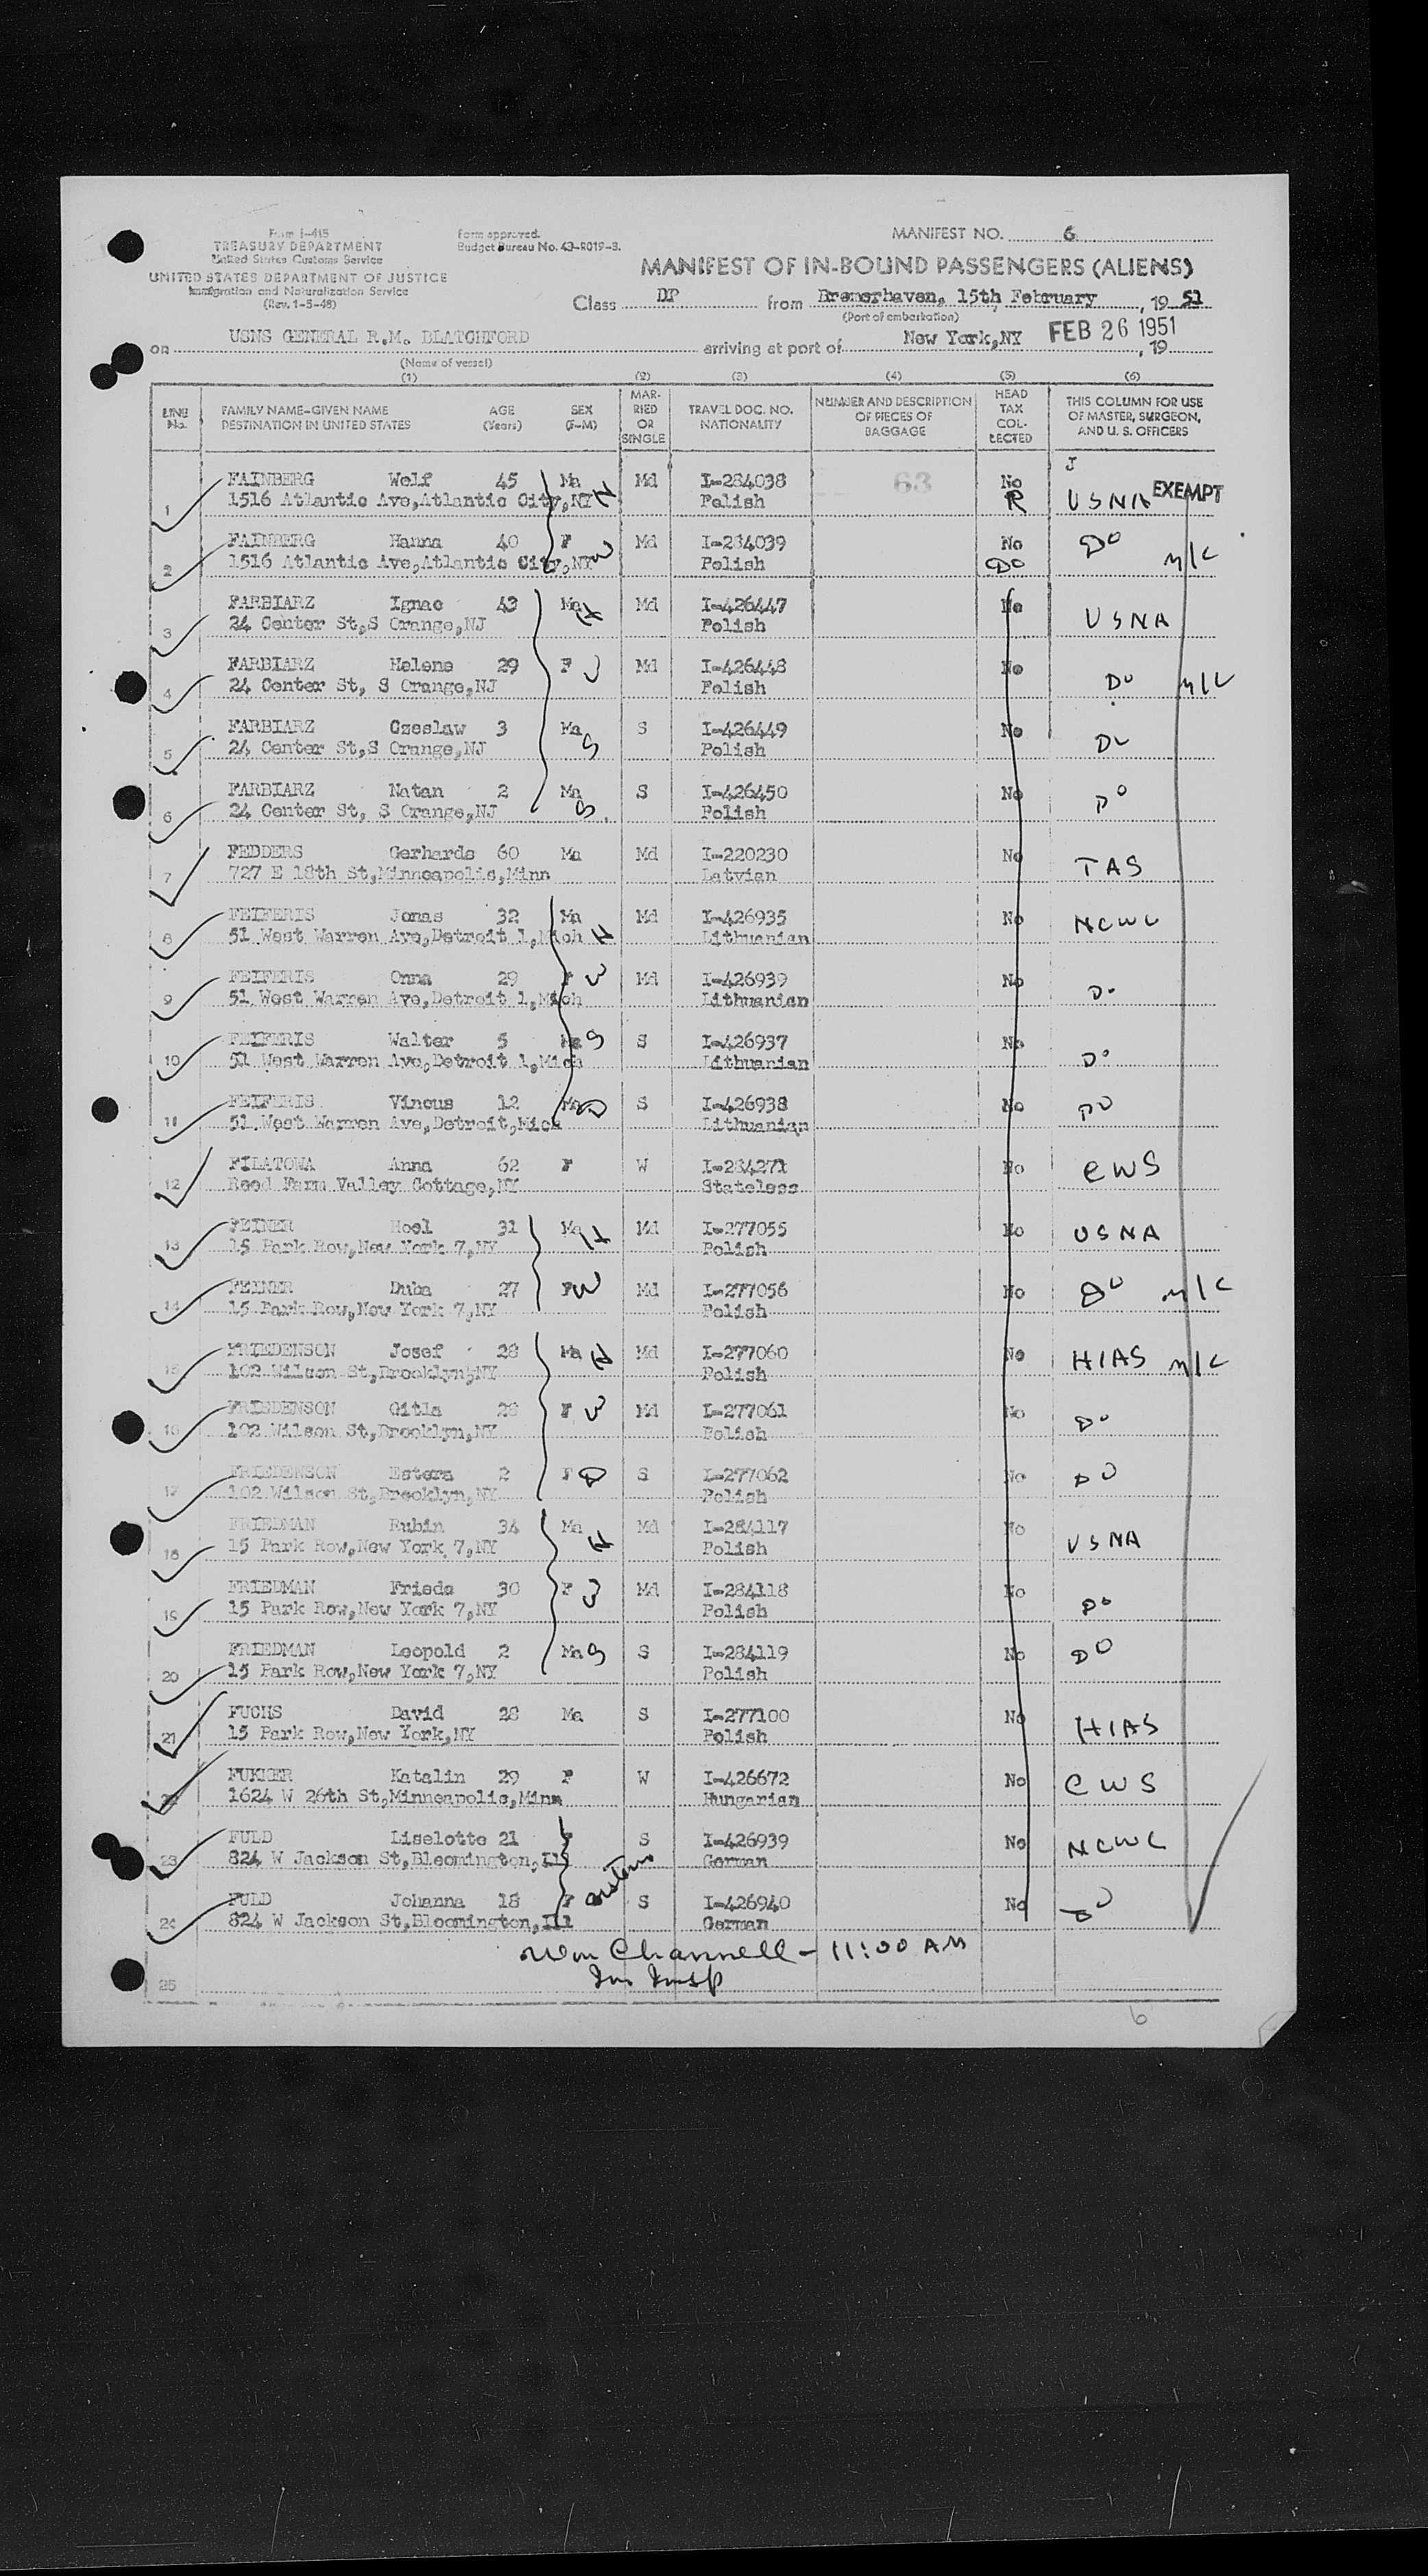 Form I-415
TREASURY DEPARTMENT
United States Customs Service
UNITED STATES DEPARTMENT OF JUSTICE
Immigration and Naturalization Service
(Rev. 1-5-48)
Form approved.
Budget Bureau No. 43-R019-3.
MANIFEST NO. 6
MANIFEST OF IN-BOUND PASSENGERS (ALIENS)
Class DP from Bremerhaven, 15th February, 19 51
(Port of embarkation)
on USNS GENERAL R.M. BLATCHFORD arriving at port of New York,NY FEB 26 1951, 19
(Name of vessel)
(1) (2) (3) (4) (5) (6)
LINE No. FAMILY NAME-GIVEN NAME DESTINATION IN UNITED STATES AGE (Years) SEX (F-M) MARRIED OR SINGLE TRAVEL DOC. NO. NATIONALITY NUMBER AND DESCRIPTION OF PIECES OF BAGGAGE HEAD TAX COLLECTED THIS COLUMN FOR USE OF MASTER, SURGEON, AND U. S. OFFICERS
J
FAINBERG Wolf 45 Ma Md I-284038 63 No
1 1516 Atlantic Ave,Atlantic City,NY H Polish R USNA EXEMPT
FAINBERG Hanna 40 F Md I-284039 No Do
2 1516 Atlantic Ave,Atlantic City,NY W Polish Do m/c
FARBIARZ Ignac 43 Ma H Md I-426447 No
3 24 Center St,S Orange,NJ Polish USNA
FARBIARZ Helene 29 F W Md I-426448 No
4 24 Center St, S Orange,NJ Polish Do m/c
FARBIARZ Czeslaw 3 Ma S I-426449 No
5 24 Center St,S Orange,NJ S Polish Do
FARBIARZ Natan 2 Ma S I-426450 No
6 24 Center St, S Orange,NJ S Polish Do
FEDDERS Gerhards 60 Ma Md I-220230 No
7 727 E 18th St,Minneapolis,Minn Latvian TAS
FEIFERIS Jonas 32 Ma Md I-426935 No NCWC
8 51 West Warren Ave,Detroit 1,Mich H Lithuanian
FEIFERIS Onna 29 F W Md I-426939 No
9 51 West Warren Ave,Detroit 1,Mich Lithuanian Do
FEIFERIS Walter 5 Ma S S I-426937 No
10 51 West Warren Ave,Detroit 1,Mich Lithuanian Do
FEIFERIS Vincus 12 Ma D S I-426938 No Do
11 51 West Warren Ave,Detroit,Mich Lithuanian
FILATOWA Anna 62 F W I-284271 No CWS
12 Reed Farm Valley Cottage,NY Stateless
FEINER Hoel 31 Ma H Md I-277055 No USNA
13 15 Park Row,New York 7,NY Polish
FEINER Duba 27 F W Md I-277056 No Do m/c
14 15 Park Row,New York 7,NY Polish
FRIEDENSON Josef 28 Ma H Md I-277060 No HIAS m/c
15 102 Wilson St,Brooklyn,NY Polish
FRIEDENSON Gitla 28 F W Md I-277061 No Do
16 102 Wilson St,Brooklyn,NY Polish
FRIEDENSON Estera 2 F D S I-277062 No Do
17 102 Wilson St,Brooklyn,NY Polish
FRIEDMAN Rubin 34 Ma Md I-284117 No
18 15 Park Row,New York 7,NY H Polish USNA
FRIEDMAN Frieda 30 F W Md I-284118 No
19 15 Park Row,New York 7,NY Polish Do
FRIEDMAN Leopold 2 Ma S S I-284119 No Do
20 15 Park Row,New York 7,NY Polish
FUCHS David 28 Ma S I-277100 No
21 15 Park Row,New York,NY Polish HIAS
FUKKER Katalin 29 F W I-426672 No CWS
22 1624 W 26th St,Minneapolis,Minn Hungarian
FULD Liselotte 21 F S I-426939 No NCWC
23 824 W Jackson St,Bloomington,Ill German
sisters
FULD Johanna 18 F S I-426940 No Do
24 824 W Jackson St,Bloomington,Ill German
Wm Channell - 11:00 AM
Im Insp
25
6